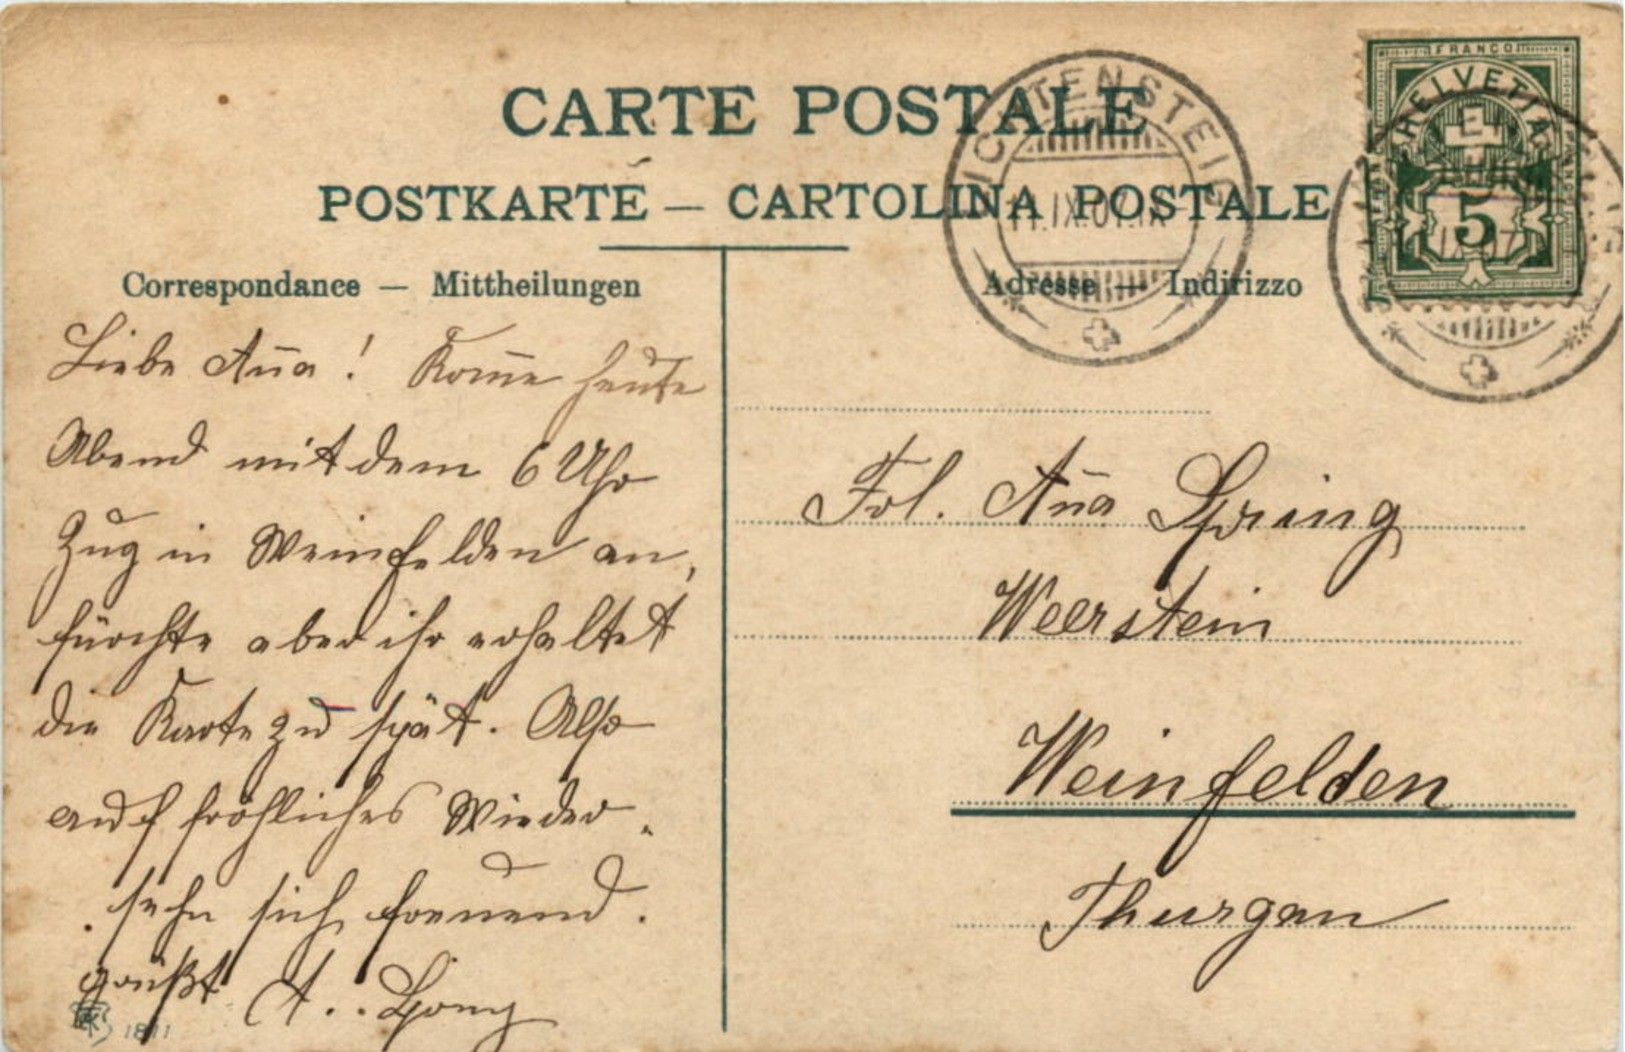 CARTE POSTALE
POSTKARTE — CARTOLINA POSTALE
Correspondance — Mittheilungen
Adresse — Indirizzo
FRANCO
HELVETIA
5
LICHTENSTEIG
11.IX.07.IX
Liebe Aña! Kom̄e heute
Abend mit dem 6 Uhr
Zug in Weinfelden an,
fürchte aber ihr erhaltet
die Karte zu spät. Also
auf fröhliches Wieder-
sehn sich freuend.
grüßt A..
Frl. Aña Spring
Weerstein
Weinfelden
Thurgau
1811